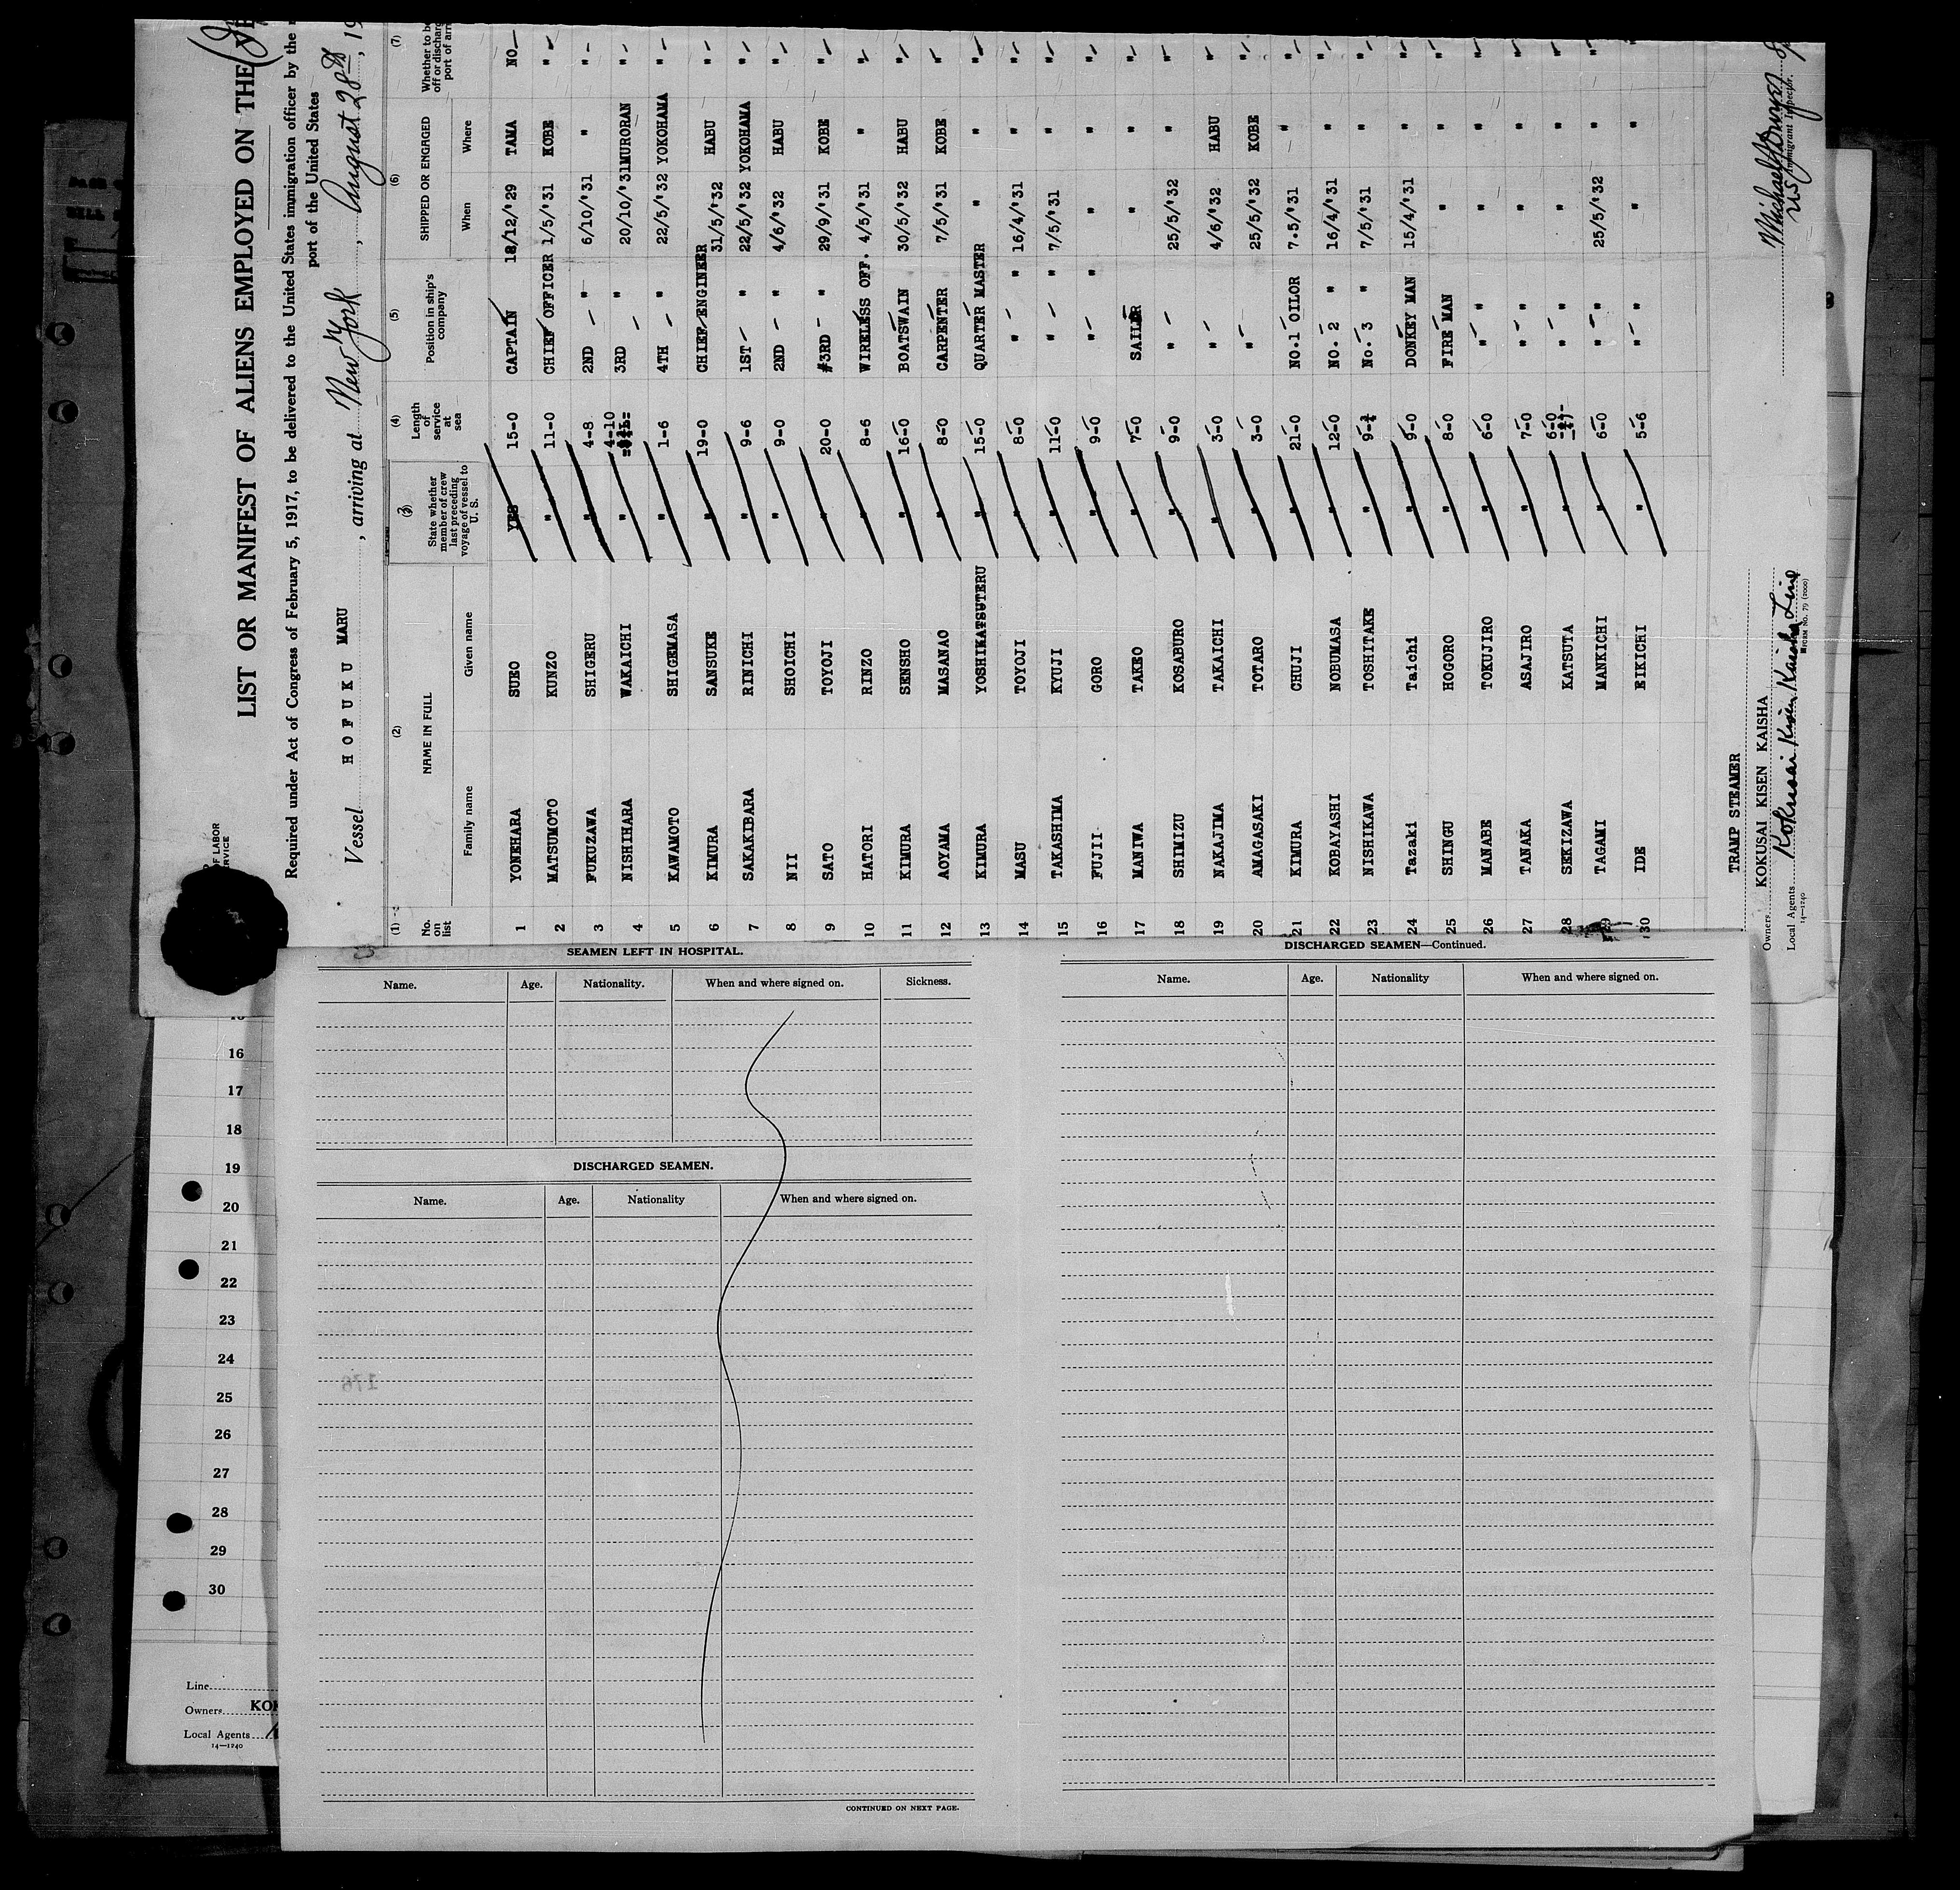 LIST OR MANIFEST OF ALIENS EMPLOYED ON THE
Required under Act of Congress of February 5, 1917, to be delivered to the United States immigration officer by the
port of the United States
Vessel HOFUKU MARU, arriving at New York, August 28th, 19
OF LABOR
(1) (2) (3) (4) (5) (6) (7)
No. on list NAME IN FULL State whether member of crew last preceding voyage of vessel to U. S. Length of service at sea Position in ship's company SHIPPED OR ENGAGED Whether to be
Family name Given name When Where
1 YONEHARA SUEO YES 15-0 CAPTAIN 18/12/'29 TAMA NO
2 MATSUMOTO KUNZO " 11-0 CHIEF OFFICER 1/5/'31 KOBE "
3 FUKUZAWA SHIGERU " 4-8 2ND " 6/10/'31 " "
4 NISHIHARA WAKAICHI " 4-10 3RD " 20/10/'31 MURORAN "
5 KAWAMOTO SHIGEMASA " 1-6 4TH " 22/5/'32 YOKOHAMA "
6 KIMURA SANSUKE " 19-0 CHIEF ENGINEER 31/5/'32 HABU "
7 SAKAKIBARA RINICHI " 9-6 1ST " 22/5/'32 YOKOHAMA "
8 NII SHOICHI " 9-0 2ND " 4/6/'32 HABU "
9 SATO TOYOJI " 20-0 #3RD " 29/9/'31 KOBE "
10 HATORI RINZO " 8-6 WIRELESS OFF. 4/5/'31 " "
11 KIMURA SENSHO " 16-0 BOATSWAIN 30/5/'32 HABU "
12 AOYAMA MASANAO " 8-0 CARPENTER 7/5/'31 KOBE "
13 KIMURA YOSHIKATSUTERU " 15-0 QUARTER MASTER " " "
14 MASU TOYOJI " 8-0 " " 16/4/'31 " "
15 TAKASHIMA KYUJI " 11-0 " " 7/5/'31 " "
16 FUJII GORO " 9-0 " " " " "
17 MANIWA TAKEO " 7-0 SAILOR " " "
18 SHIMIZU KOSABURO " 9-0 " 25/5/'32 " "
19 NAKAJIMA TAKAICHI " 3-0 " 4/6/'32 HABU "
20 AMAGASAKI TOTARO " 3-0 " 25/5/'32 KOBE "
21 KIMURA CHUJI " 21-0 NO.1 OILOR 7.5/'31 " "
22 KOBAYASHI NOBUMASA " 12-0 NO. 2 " 16/4/'31 " "
23 NISHIKAWA TOSHITAKE " No. 3 " 7/5/'31 " "
24 Tazaki Taichi " 9-0 DONKEY MAN 15/4/'31 " "
25 SHINGU HOGORO " 8-0 FIRE MAN " " "
26 MANABE TOKUJIRO " 6-0 " " " " "
27 TANAKA ASAJIRO " 7-0 " " " " "
28 SEKIZAWA KATSUTA " 6-0 " " " " "
29 TAGAMI MANKICHI " 6-0 " " 25/5/'32 " "
30 IDE EIKICHI " 5-6 " " " " "
TRAMP STEAMER
Owners KOKUSAI KISEN KAISHA
Local Agents Kokusai Kisen Kaisha Line
14—1240
Immigrant Inspector.
SEAMEN LEFT IN HOSPITAL.
Name. Age. Nationality. When and where signed on. Sickness.
DISCHARGED SEAMEN.
Name. Age. Nationality When and where signed on.
CONTINUED ON NEXT PAGE.
DISCHARGED SEAMEN—Continued.
Name. Age. Nationality When and where signed on.
16
17
18
19
20
21
22
23
24
25
26
27
28
29
30
Line
Owners KOK
Local Agents
14—1240